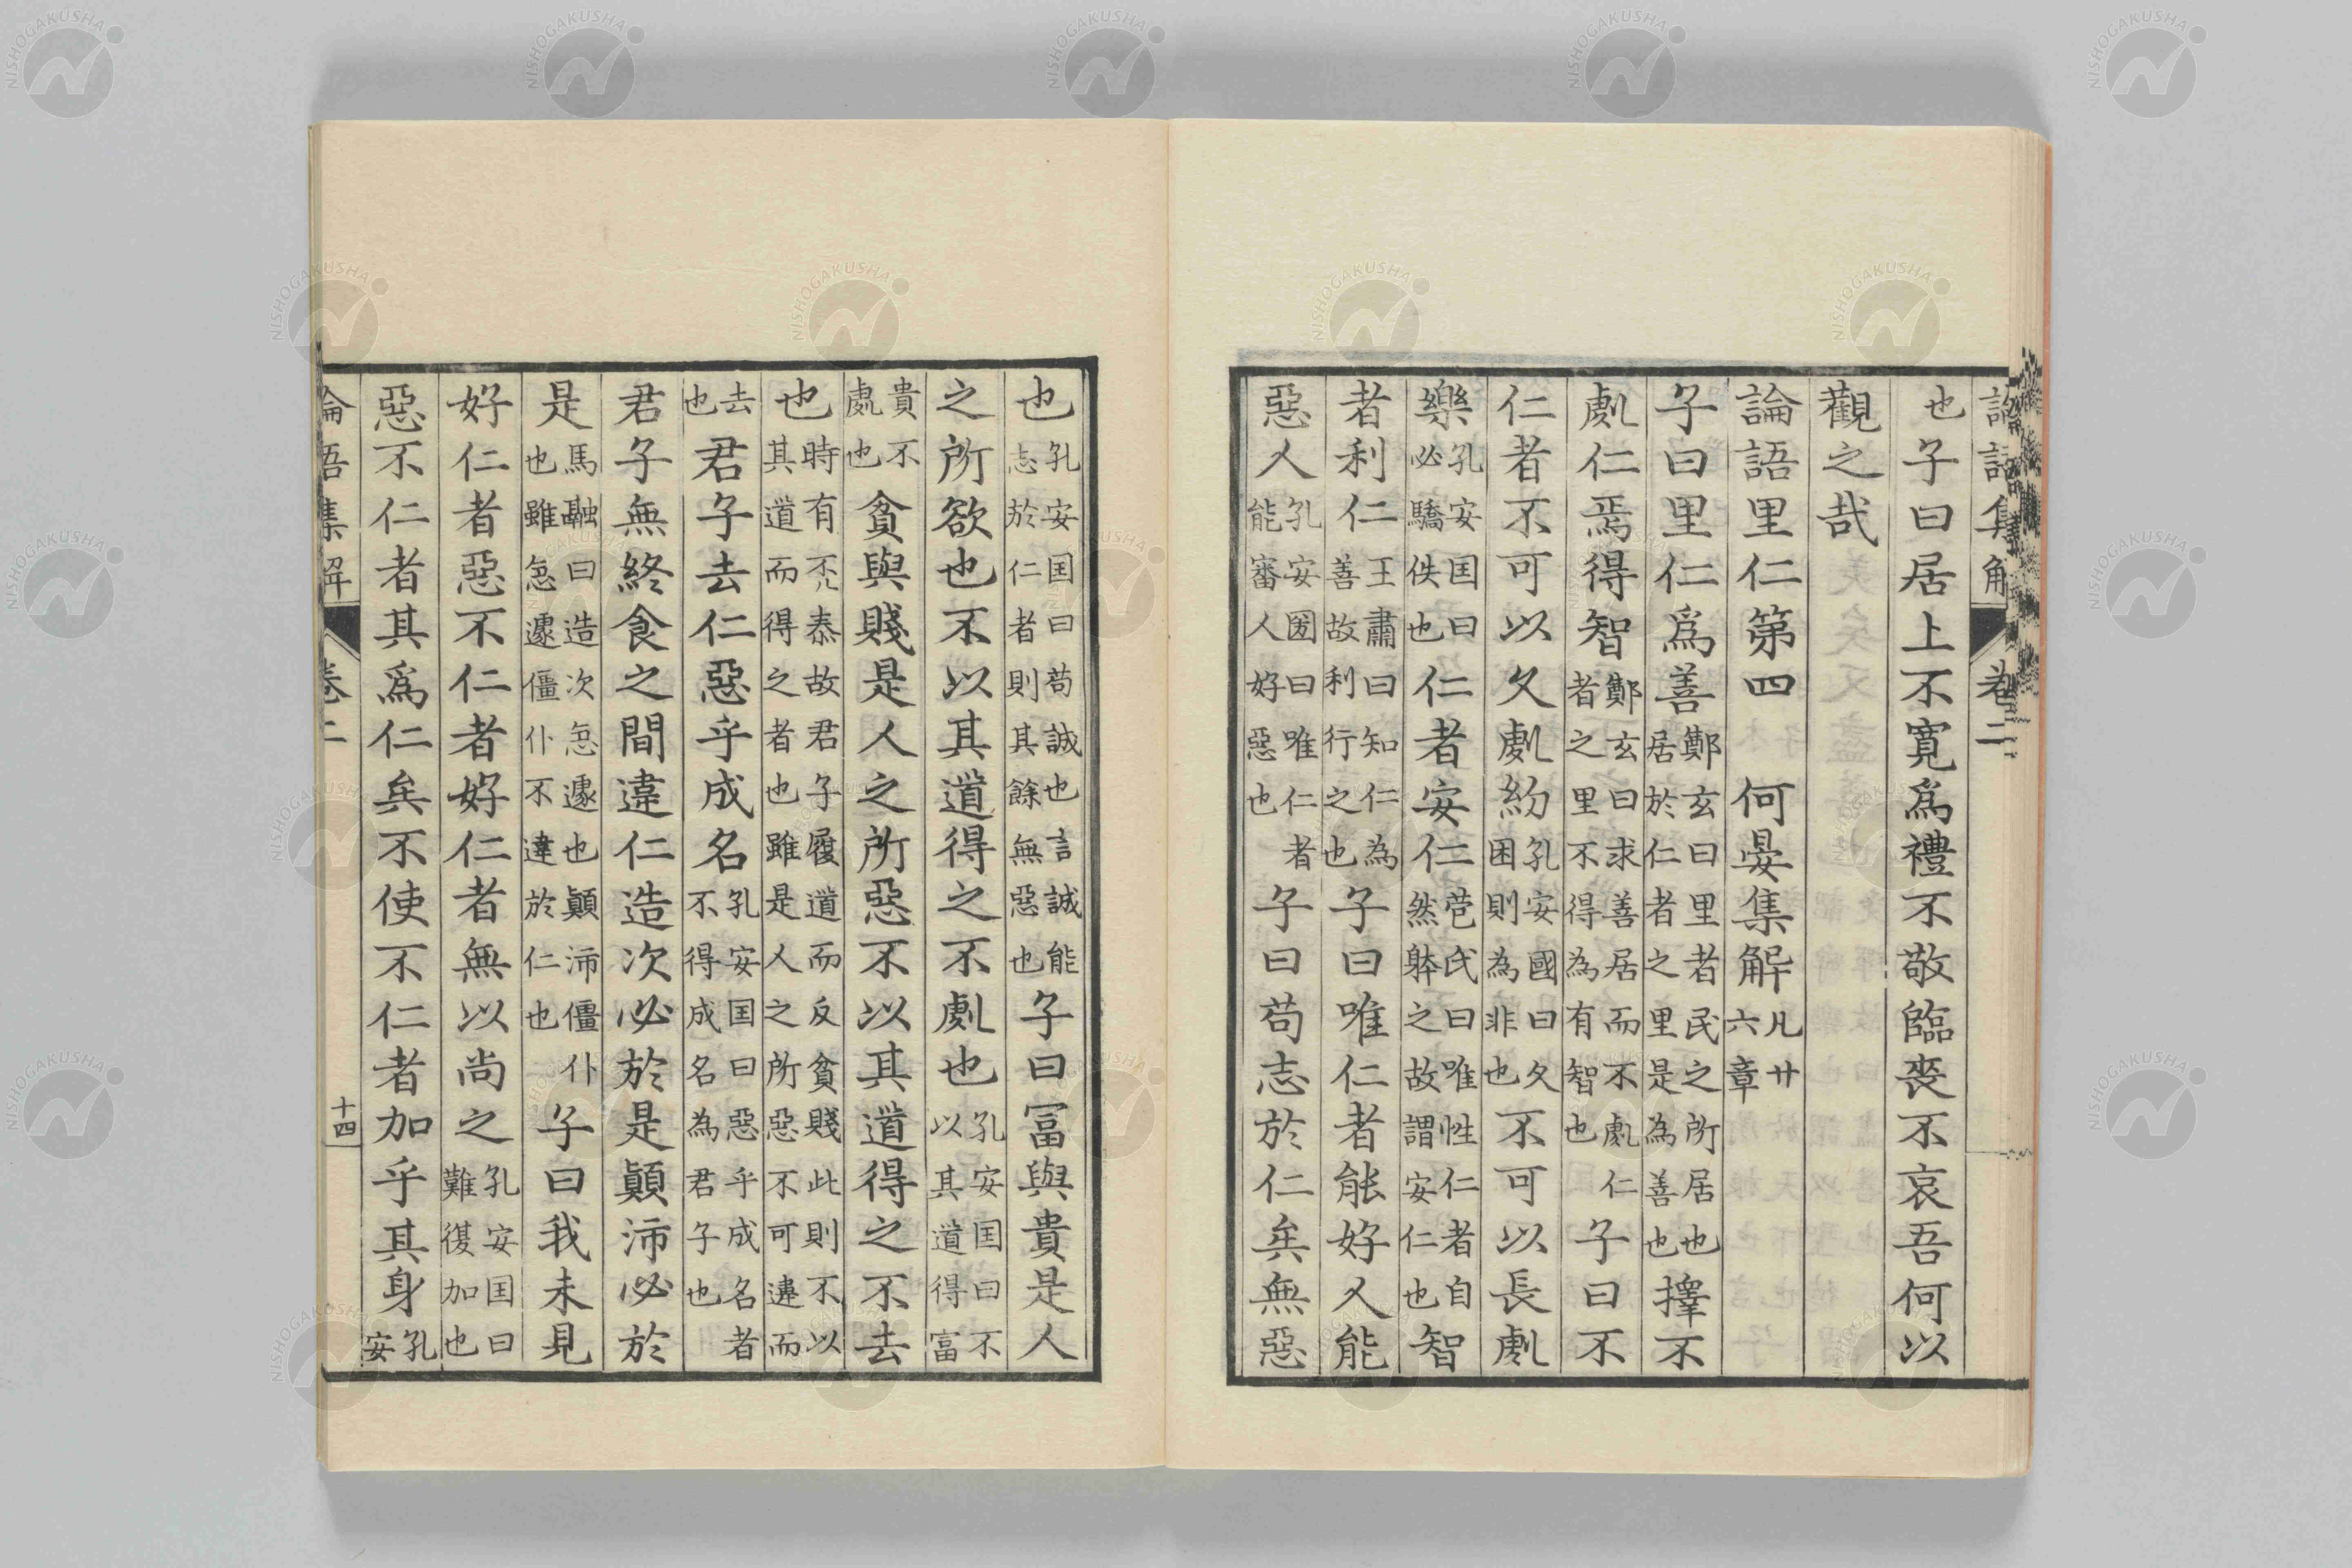 論語集解 卷二
也子曰居上不寛爲禮不敬臨喪不哀吾何以
觀之哉
論語里仁第四 何晏集解 凡廿六章
子曰里仁爲善 鄭玄曰里者民之所居也居於仁者之里是為善也 擇不
處仁焉得智 鄭玄曰求善居而不處仁者之里不得為有智也 子曰不
仁者不可以久處約 孔安國曰久困則為非也 不可以長處
樂 孔安国曰必驕佚也 仁者安仁 苞氏曰唯性仁者自然躰之故謂安仁也 智
者利仁 王肅曰知仁為善故利行之也 子曰唯仁者能好人能
惡人 孔安圀曰唯仁者能審人好惡也 子曰苟志於仁矣無惡
也 孔安国曰苟誠也言誠能志於仁者則其餘無惡也 子曰冨與貴是人
之所欲也不以其道得之不處也 孔安国曰不以其道得富
貴不處也 貧與賤是人之所惡不以其道得之不去
也 時有否泰故君子履道而反貧賤此則不以其道而得之者也雖是人之所惡不可違而
去也 君子去仁惡乎成名 孔安国曰惡乎成名者不得成名為君子也
君子無終食之間違仁造次必於是顛沛必於
是 馬融曰造次急遽也顛沛僵仆也雖急遽僵仆不違於仁也 子曰我未見
好仁者惡不仁者好仁者無以尚之 孔安国曰難復加也
惡不仁者其爲仁矣不使不仁者加乎其身 孔安
論語集解 卷二 十四
NISHOGAKUSHA